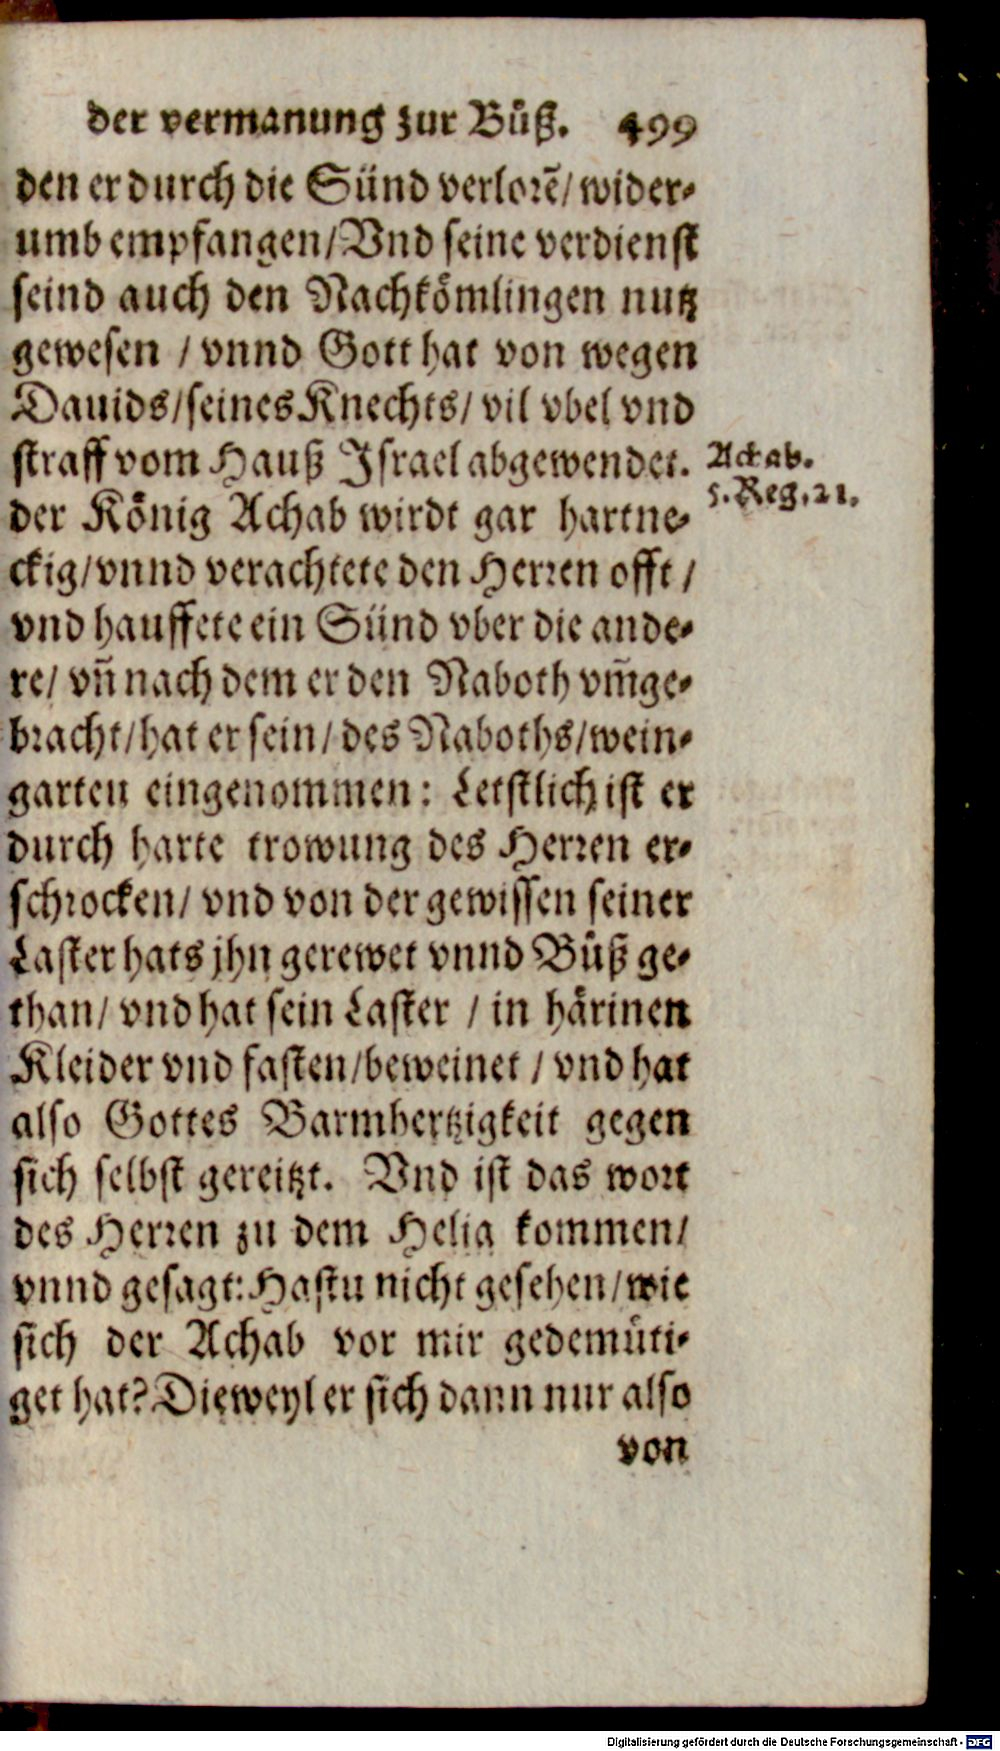 der vermanung zur Bůß. 499
den er durch die Sünd verlorẽ/ wider-
umb empfangen/ Vnd seine verdienst
seind auch den Nachkömlingen nutz
gewesen / vnnd Gott hat von wegen
Dauids/ seines Knechts/ vil vbel vnd
straff vom Hauß Israel abgewendet.
Achab.
5. Reg. 21.
der König Achab wirdt gar hartne-
ckig/ vnnd verachtete den Herren offt /
vnd hauffete ein Sünd vber die ande-
re/ vñ nach dem er den Naboth vm̃ge-
bracht/ hat er sein/ des Naboths/ wein-
garten eingenommen: Letstlich ist er
durch harte trowung des Herren er-
schrocken/ vnd von der gewissen seiner
Laster hats jhn gerewet vnnd Bůß ge-
than/ vnd hat sein Laster / in härinen
Kleider vnd fasten/ beweinet / vnd hat
also Gottes Barmhertzigkeit gegen
sich selbst gereitzt. Vnd ist das wort
des Herren zu dem Helia kommen/
vnnd gesagt: Hastu nicht gesehen/ wie
sich der Achab vor mir gedemüti-
get hat? Dieweyl er sich dann nur also
von
Digitalisierung gefördert durch die Deutsche Forschungsgemeinschaft - DFG